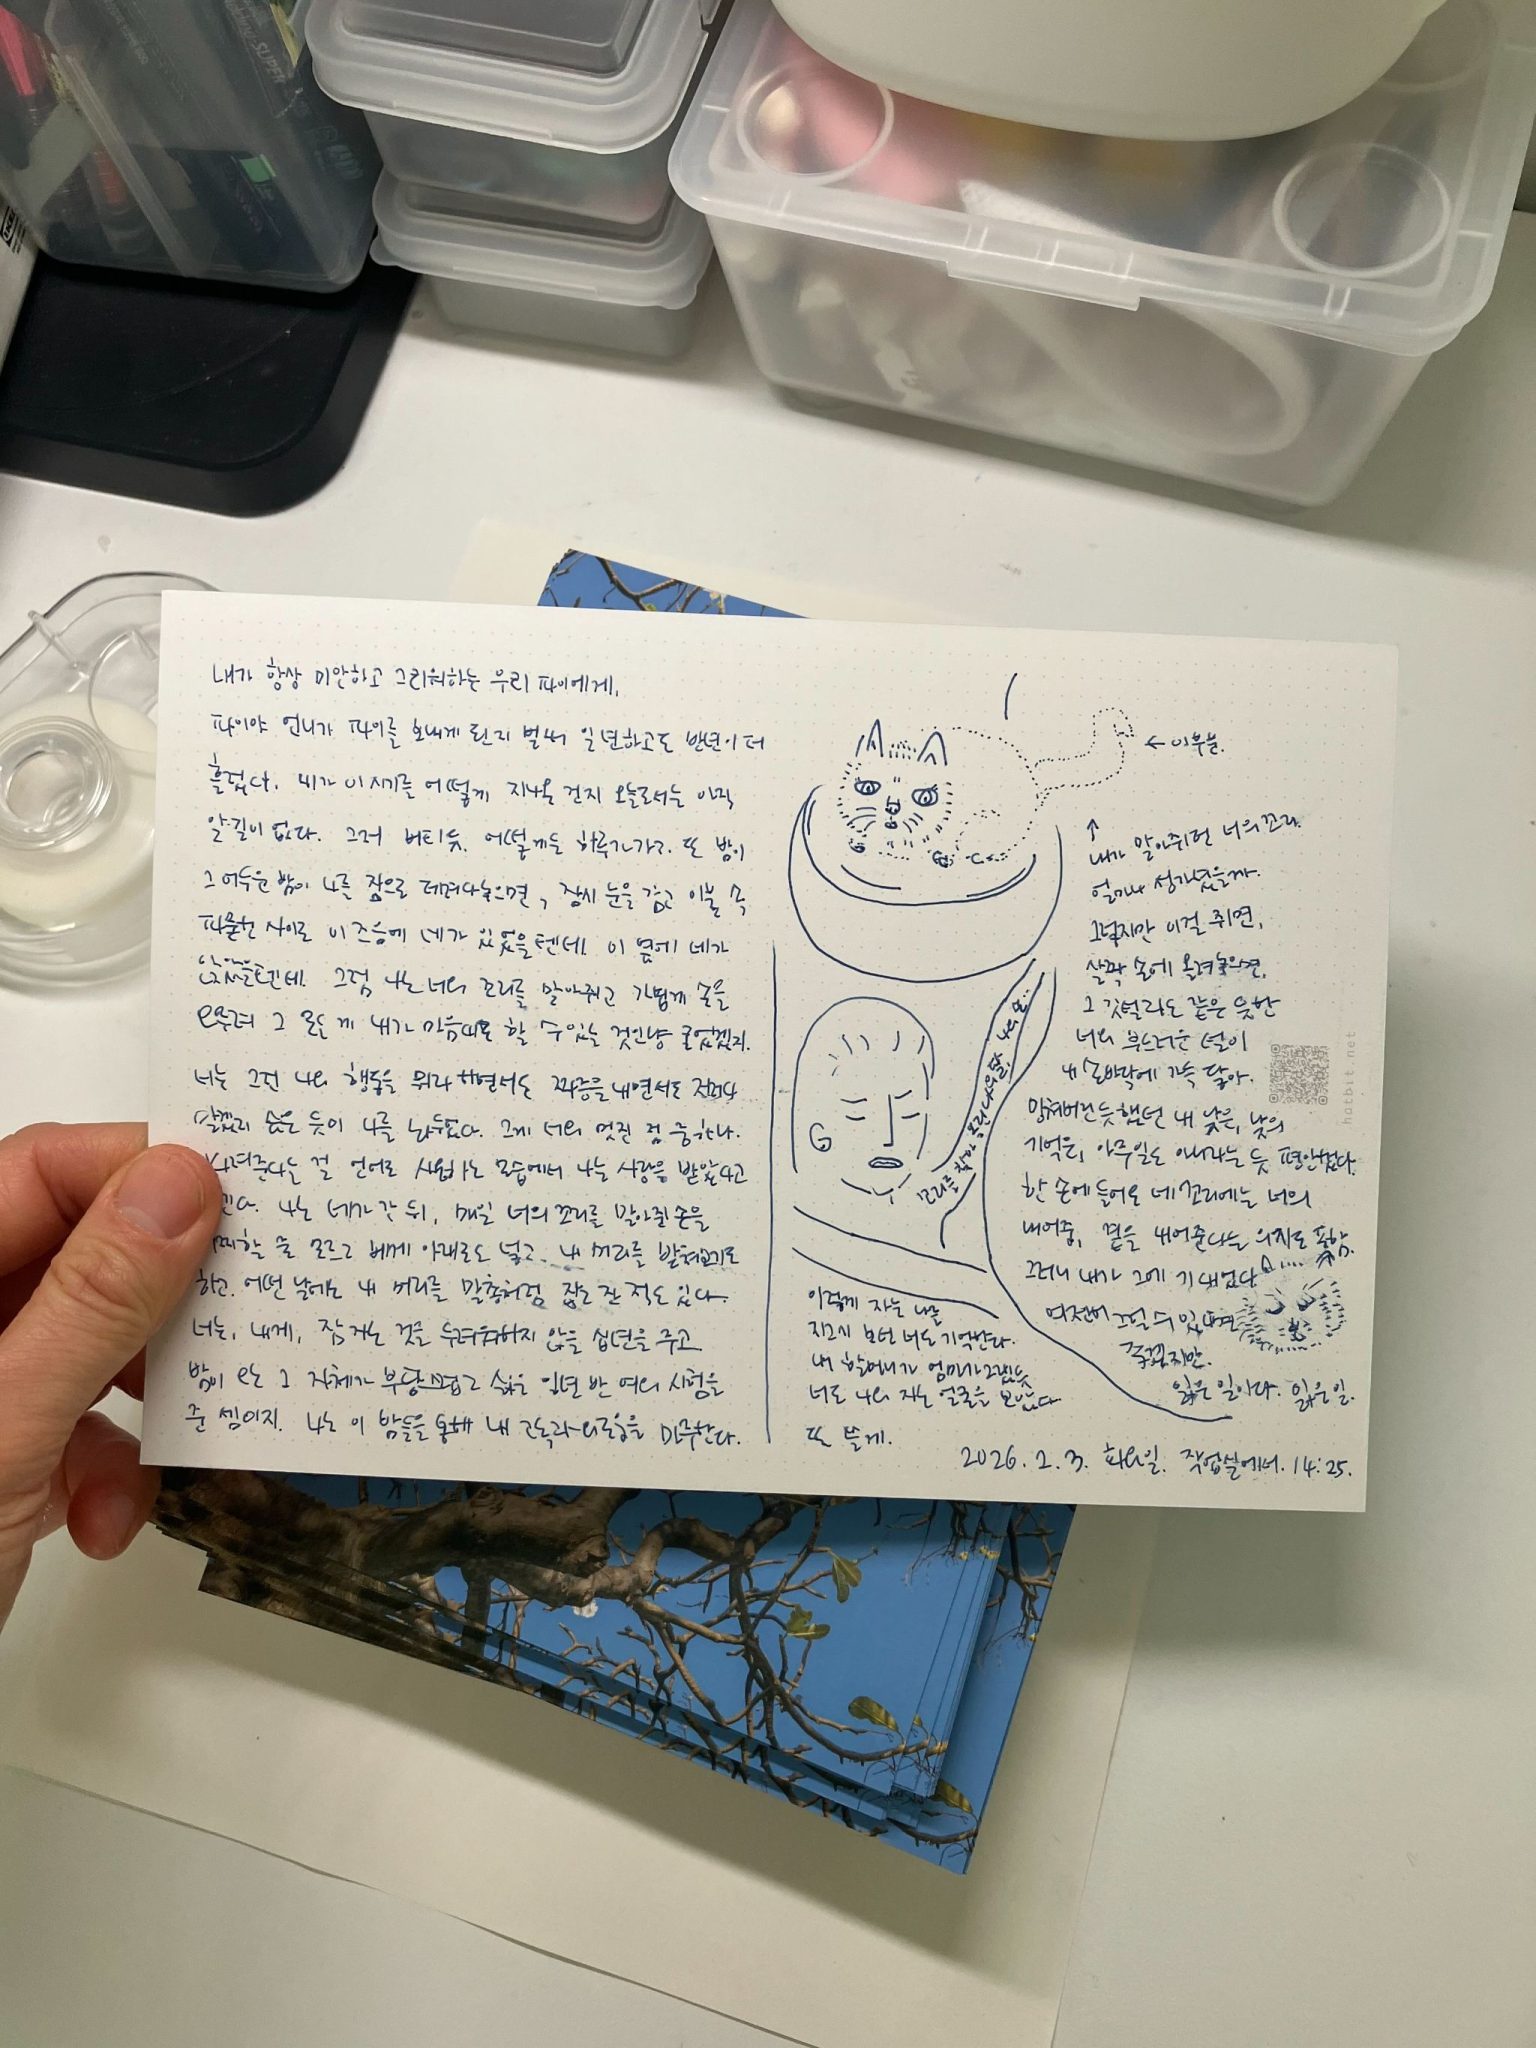 내가 항상 미안하고 그리워하는 우리 파이에게,
파이야 언니가 파이를 보내게 된지 벌써 일년하고도 반년이 더
흘렀다. 내가 이 시기를 어떻게 지나온 건지 오늘로서는 아직
알 길이 없다. 그저 버티듯, 어떻게든 하루가 가고 또 밤이
그 어두운 밤이 나를 잠으로 데려다 놓으면, 잠시 눈을 감고 이불 속
파묻힌 사이로 이 즈음에 네가 있었을텐데. 이 옆에 네가
있었을텐데. 그럼 나는 너의 꼬리를 말아쥐고 가볍게 손을
오므려 그 모든 게 내가 마음대로 할 수 있는 것인냥 굴었겠지.
너는 그런 나의 행동을 뭐라 하면서도 짜증을 내면서도 전부 다
알겠기 싫은 듯이 나를 놔두었다. 그게 너의 멋진 점 중 하나.
내려준다는 걸 언어로 사용하는 모습에서 나는 사랑을 받았다고
나는 네가 간 뒤, 매일 너의 꼬리를 말아쥔 손을
어찌할 줄 모르고 베게 아래로도 넣고 내 머리를 받쳐보기도
하고. 어떤 날에는 내 머리를 말총처럼 잡고 잔 적도 있다.
너는, 내게, 잠 자는 것을 두려워하지 않을 십년을 주고
밤이 오는 그 자체가 부당스럽고 싫을 일년 반 여의 시험을
준 셈이지. 나는 이 밤들을 통해 내 고독과 외로움을 마주한다.
← 이 부분.
↑
내가 말아쥐던 너의 꼬리.
얼마나 성가셨을까.
그렇지만 이걸 쥐면,
살짝 손에 올려놓으면,
그 깃털라도 같은 듯한
너의 부드러운 털이
내 손바닥에 가득 닿아.
망쳐버린 듯했던 내 낮은, 낮의
기억은, 아무일도 아니라는 듯 평안했다.
한 손에 들어온 네 꼬리에는 너의
내어줌, 곁을 내어준다는 의지도 포함.
그러니 내가 그에 기대었다
여전히 그럴 수 있다면
좋겠지만.
잃은 일이다. 잃은 일.
꼬리를 찾아 올라 나의
이렇게 자는 나를
지그시 보던 너도 기억한다.
내 할머니가 엄마가 그랬듯
너도 나의 자는 얼굴을 보았다
또 쓸게.
2026. 2. 3. 화요일. 작업실에서. 14:25.
hatbit.net